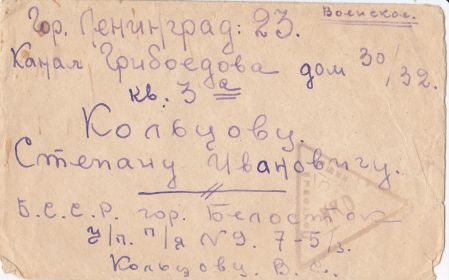 Воинское.
Гор. Ленинград: 23.
Канал Грибоедова дом 30/32.
кв. 3а
Кольцову.
Степану Ивановичу.
Б.С.С.Р. гор. Белосток
п/я N9. 7-5/3.
Кольцову. В. С.